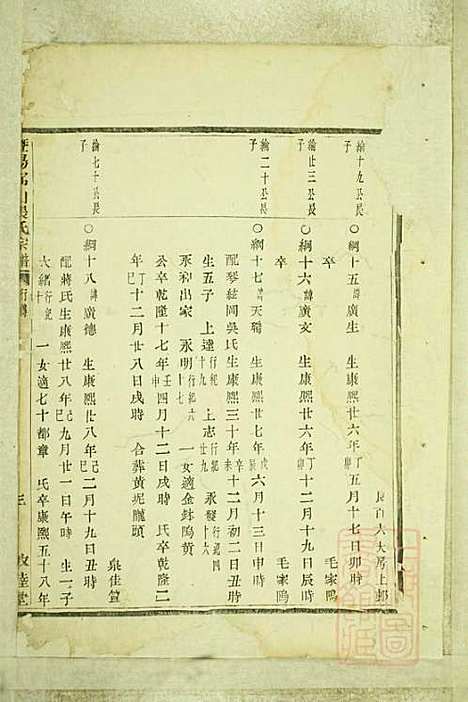 長百六大房上鄉
綸十九公長子
○綱十五諱廣生 生康熙廿六年丁卯五月十七日卯時 毛家塢
卒
綸廿三公長子
○綱十六諱廣玄 生康熙廿六年丁卯十二月十九日辰時 毛家塢
卒
綸二十公長子
○綱十七諱天聘 生康熙廿七年戊辰六月十三日申時
配琴絃岡吳氏生康熙三十年辛未十二月初二日丑時
生五子 上達行紀十九 上志行紀廿九 永發行紀四
永利出家 永明行紀六十七 一女適金缽塢黃
公卒乾隆十七年壬申四月十二日戌時 氏卒乾隆二
年丁巳十二月廿八日戌時 合葬黃坭隴頭
綸七十公長子
○綱十八諱廣德 生康熙廿八年己巳二月十九日丑時 泉佳篁
配蔣氏生康熙廿八年己巳九月廿一日午時 生一子
大緒行紀十 一女適七十都章 氏卒康熙五十八年
氏宗譜 行傳 三 敦睦堂